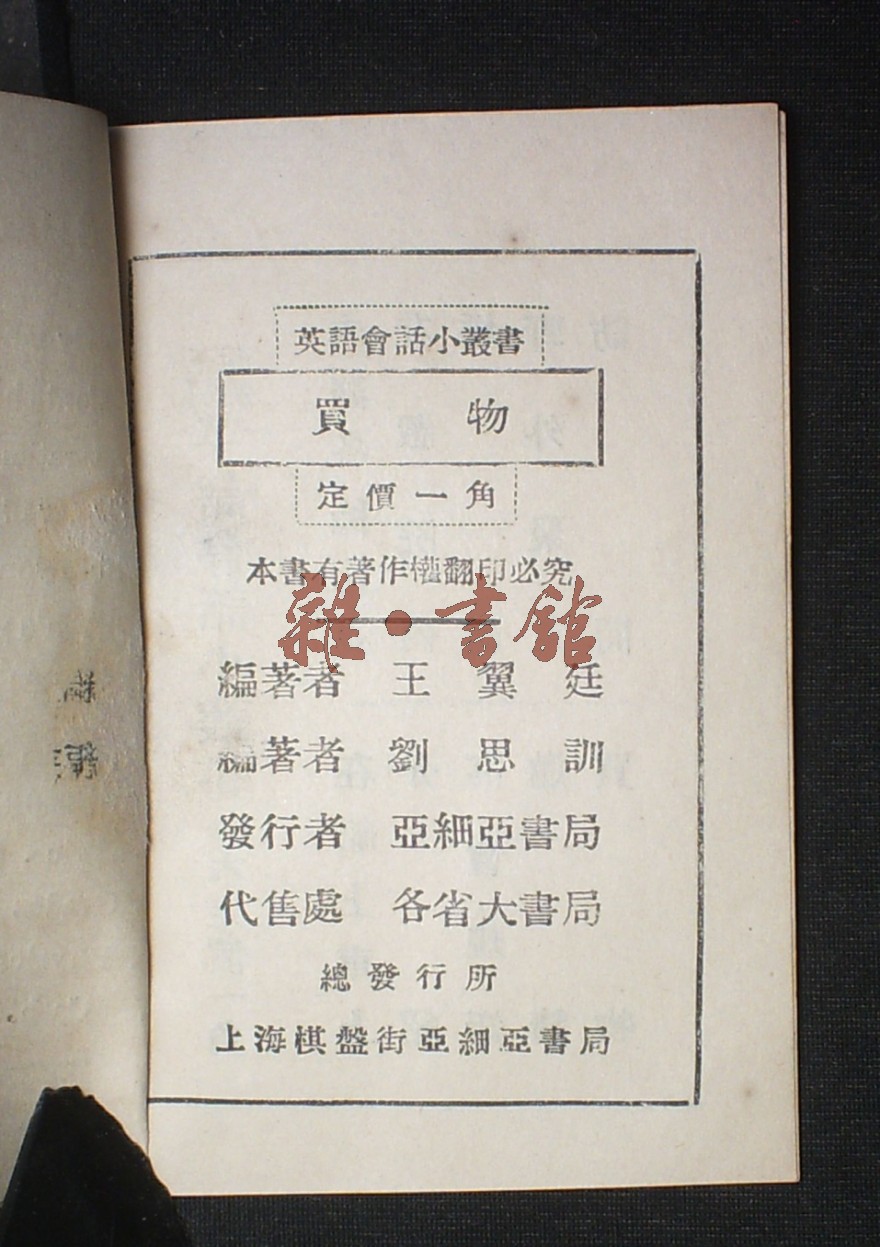 英語會話小叢書
買物
定價一角
本書有著作權翻印必究
雜·書館
編著者 王翼廷
編著者 劉思訓
發行者 亞細亞書局
代售處 各省大書局
總發行所
上海棋盤街亞細亞書局